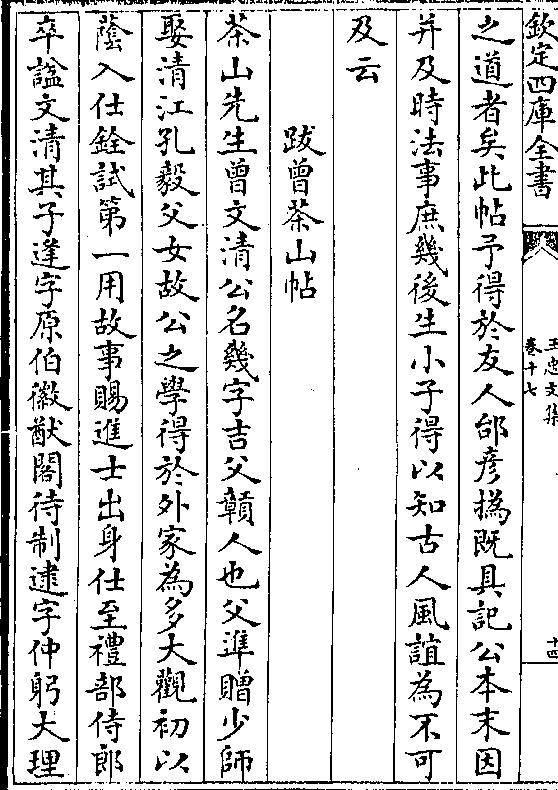 欽定四庫全書
王忠文集
卷十七
十四
之道者矣此帖予得於友人邰彦撝既具記公本末因
并及時法事庶幾後生小子得以知古人風誼為不可
及云
跋曾茶山帖
茶山先生曾文清公名幾字吉父贑人也父準贈少師
娶清江孔毅父女故公之學得於外家為多大觀初以
蔭入仕銓試第一用故事賜進士出身仕至禮部侍郎
卒諡文清其子逢字原伯徽猷閣待制逮字仲躬大理